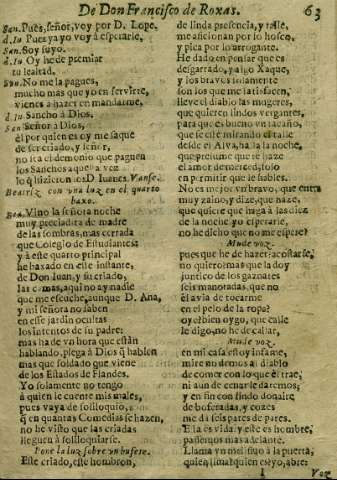 De Don Francisco de Roxas. 63
San. Pues, señor, voy por D. Lope.
d. Iu. Pues ya yo voy à esperarle,
San. Soy suyo.
d. Iu. Oy he de premiar
tu lealtad.
San. No me la pagues,
mucho mas que yo en servirte,
vienes à hazer en mandarme.
d. Iu. Sancho à Dios.
San. Señor à Dios,
él por quien es oy me saque
de ser criado, y señor,
no sea el demonio que paguen
los Sanchos aquesta vez
lo que hizieron los D. Iuanes. Vanse.
Beatriz con una luz en el quarto
baxo.
Bea. Vino la señora noche
muy preciadita de madre
de las sombras, mas cerrada
que Colegio de Estudiantes:
y à este quarto principal
he baxado en este instante,
de Don Iuan, y su criado,
las camas, aqui no ay nadie
que me escuche, aunque D. Ana,
y mi señora no saben
en esse jardin ocultas
los intentos de su padre:
mas ha de vn hora que están
hablando, plega à Dios que hablen
mas que soldado que viene
de los Estados de Flandes.
Yo solamente no tengo
à quien le cuente mis males,
pues vaya de soliloquio,
que en quantas Comedias se hazen,
no he visto que las criadas
lleguen à soliloquiarse.
Pone la luz sobre un bufete.
Este criado, este hombron,
de linda presencia, y talle,
me aficionan por lo hosco,
y pica por lo arrogante.
He dado en pensar que es
desgarrado, y algo Xaque,
y los bravos solamente
son los que me satisfacen,
lleve el diablo las mugeres,
que quieren lindos vergantes,
para que es bueno vn
que se esté mirando el talle
desde el Alva, hasta la noche,
que presume que se haze
el amor de merced, solo
en permitir que le hablen.
No es mejor vn bravo, que entra
muy zaino, y dize, que naze,
que quiere que haga à las diez
de la noche, yo esperarle,
no he dicho que no me espere?
Mude voz.
pues que he de hazer? acostarse,
no quiero: mas que la doy
juntico de los gaznates
seis manotadas, que no
él avia de tocarme
en el pelo de la ropa?
oye? bien oygo, que calle
le digo, no he de callar,
Mude voz.
en mi casa estoy infame,
mire no demos al diablo
de comer con lo que él trae;
ni aun de cenarle daremos,
y en fin con lindo donaire,
de bofetadas, y cozes
me dà seis pares de pares.
Esta es vida, y este es hombre,
passemos mas adelante.
Llama vn mes suyo à la puerta,
quien llama? quien es? yo, abre:
I Voz